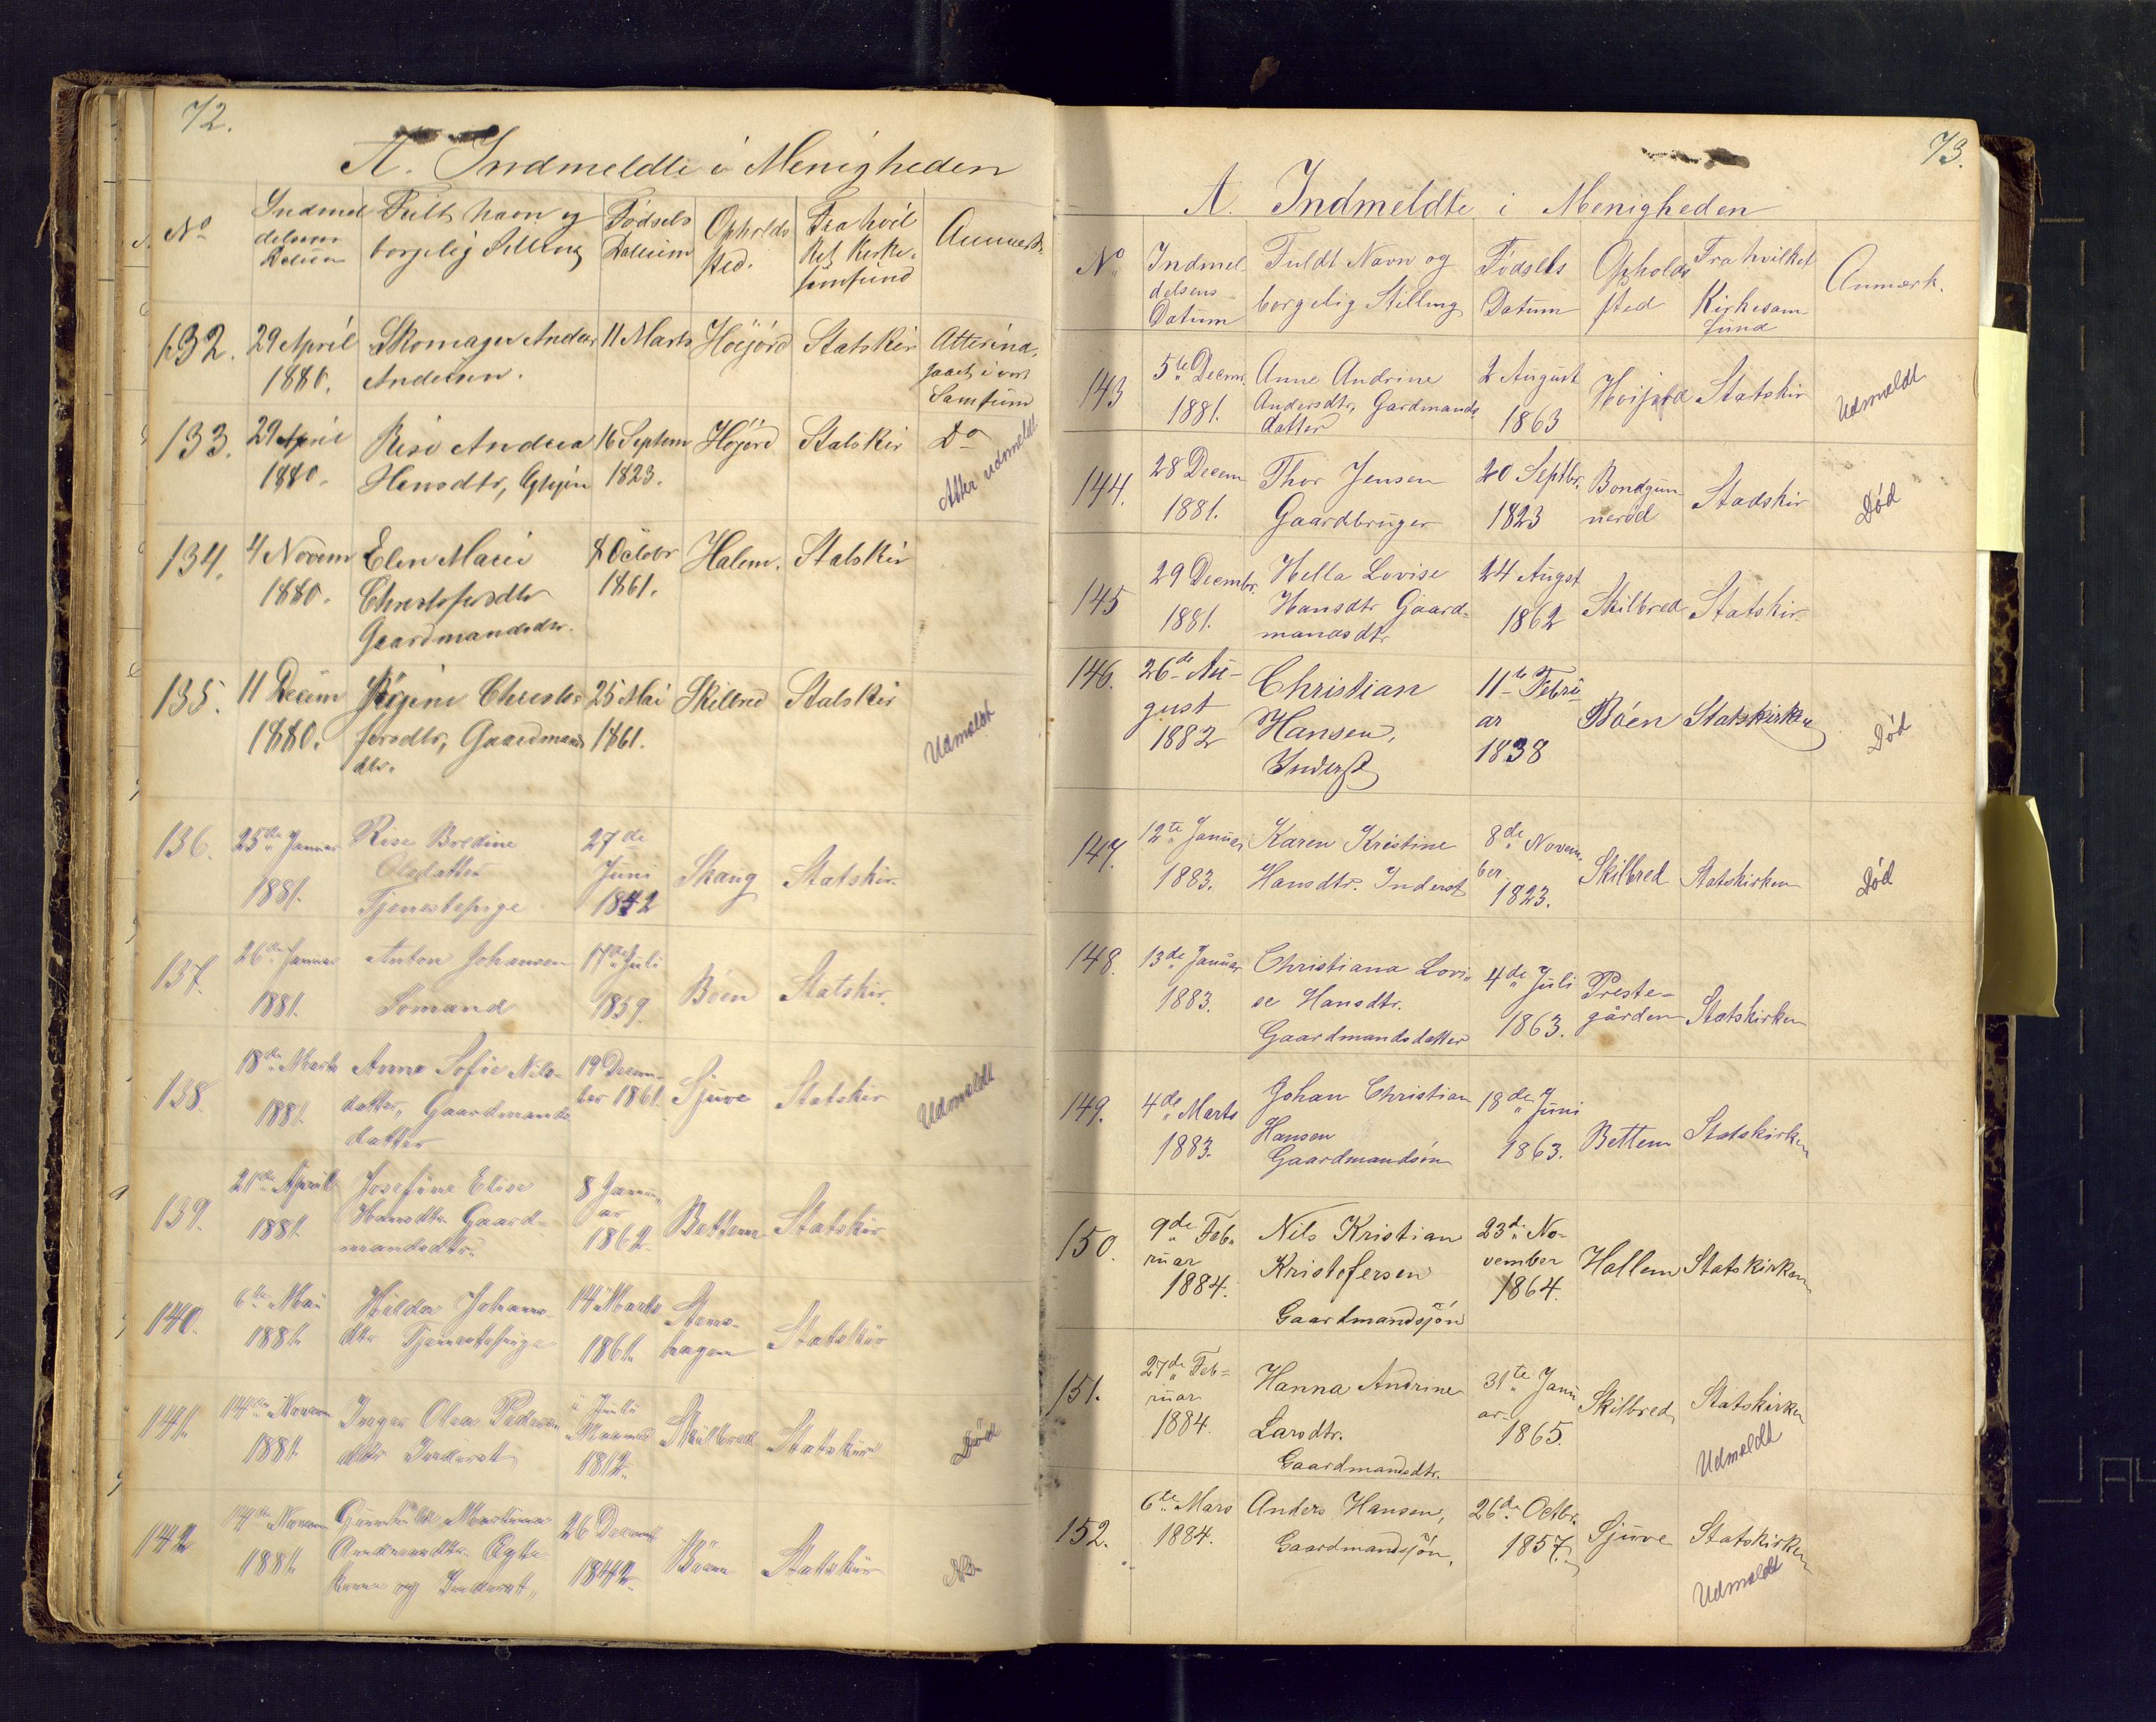 72.
A. Indmeldte i Menigheden
No
Indmel
delsens
Datum
Fuldt Navn og
borgelig Stilling
Fødsels
Datum
Opholds
sted.
Fra hvil
ket Kirke-
samfund
Anmærk.
132.
29 April
1880.
Skomager Anders
Andersen.
11 Marts
Höijörd
Statskir
Atterind,
gaaet i vort
Samfund
133.
29 April
1880.
Andrea
Hensdtr,
16 Septem
1823.
Höjörd
Statskir
Do
Atter udmeldt
134.
4 Novem
1880.
Elen Marie
Christofersdtr
Gaardmandsdtr.
8 Octobr
1861.
Halem.
Statskir
135.
11 Decem
1880.
Jörgine Christo
fersdtr, Gaardmands
dtr.
25 Mai
1861.
Skilbred
Statskir
Udmeldt
136.
25de Januar
1881.
Rise Bredine
Olsdatter
Tjenestepige
27de
Juni
1842
Skang
Statskir.
137.
26de Januar
1881.
Anton Johansen
Sømand
17de Juli
1859.
Böen
Statskir.
138.
18de Marts
1881.
Anne Sofie Nils-
datter, Gaardmands
datter
19 Decem-
ber 1861.
Sjuve
Statskir
Udmeldt
139.
21de April
1881.
Josefine Elise
Hansdtr. Gaard-
mandsdtr.
8 Janu,
ar
1862.
Bettem
Statskir
140.
6te Mai
1881.
Hilda Johans-
dtr Tjenestepige
14 Marts
1861.
Stens-
hagen
Statskir
141.
14de Novem
1881.
Inger Olea Peders
dtr Inderst
1812.
Skilbred
Statskir
Död
142
14de Novem
1881.
Gunhilde Martine
Amundsdtr. Egte
kone og Inderst,
26 Decemb
1842.
Böen
Statskir
73.
A. Indmeldte i Menigheden
No
Indmel-
delsens
Datum
Fuldt Navn og
borgelig Stilling
Fødsels
Datum
Opholds
sted
Fra hvilket
Kirkesam-
fund
Anmærk.
143
5te Decmr.
1881.
Anne Andrine
Andersdtr, Gardmands
datter
2 August
1863
Höijörd
Statskir
Udmeldt
144.
28 Decem
1881.
Thor Jensen
Gaardbruger
20 Septbr.
1823
Bondgun
neröd
Stadskir
Död
145
29 Decembr.
1881.
Hella Lovise
Hansdtr Gaard-
mandsdtr.
24 Augst
1862
Skilbred
Statskir.
146.
26de Au-
gust
1882
Christian
Hansen,
Inderst
11te Febru
ar
1838
Böen
Statskirken
Död
147.
12te Januar
1883.
Karen Kristine
Hansdtr. Inderst
8de Novem,
ber
1823.
Skilbred
Statskirken
Död
148.
13de Januar
1883.
Christiana Lovi-
se Hansdtr.
Gaardmandsdatter
4de Juli
1863.
Preste-
gården
Statskirken
149.
4de Marts
1883.
Johan Christian
Hansen
Gaardmandsön
18de Juni
1863.
Bettem
Statskirken
150.
9de Feb-
ruar
1884.
Nils Kristian
Kristofersen
Gaardmandsjön
23de No-
vember
1864.
Hallem
Statskirken
151.
27de Feb-
ruar
1884.
Hanna Andrine
Larsdtr.
Gaardmandsdtr.
31te Janu
ar
1865.
Skilbred
Statskirken
Udmeldt
152.
6te Mars
1884.
Anders Hansen,
Gaardmandsjön,
26de Octbr.
1857.
Sjuve
Statskirken
Udmeldt